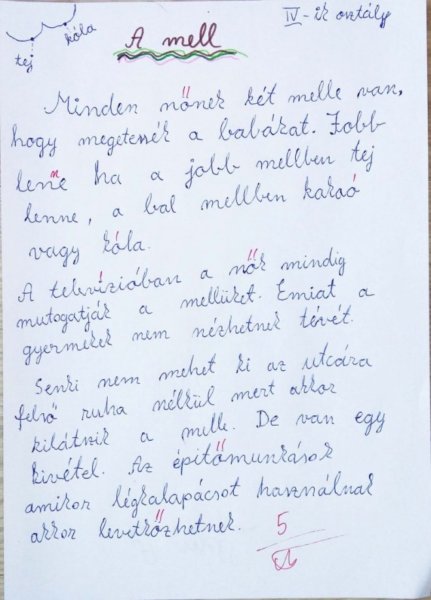 IV-ik osztály
kóla
tej
A mell
Minden nőnek két melle van,
hogy megetessék a babákat. Jobb
lenne ha a jobb mellben tej
lenne, a bal mellben kakaó
vagy kóla.
A televízióban a nők mindig
mutogatják a mellüket. Emiat a
gyermekek nem nézhetnek tévét.
Senki nem mehet ki az utcára
felső ruha nélkül mert akkor
kilátszik a melle. De van egy
kivétel. Az építőmunkások
amikor légkalapácsot használnak
akkor levetkőzhetnek.
5